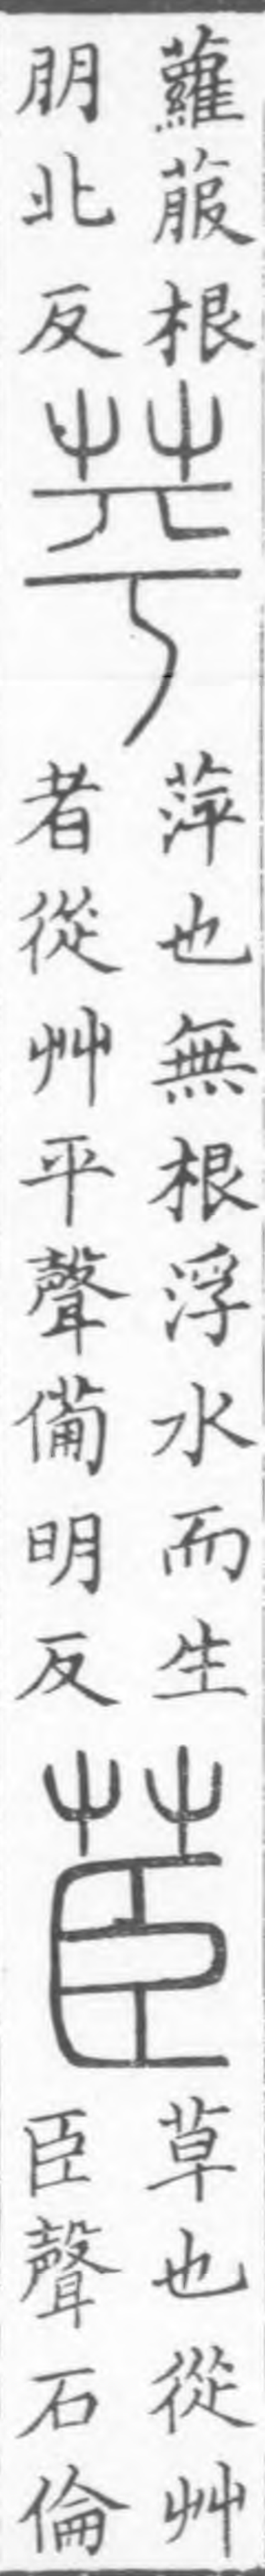 蘿菔根
朋北反
苹
萍也無根浮水而生
者從艸平聲備明反
茞
草也從艸
臣聲石倫